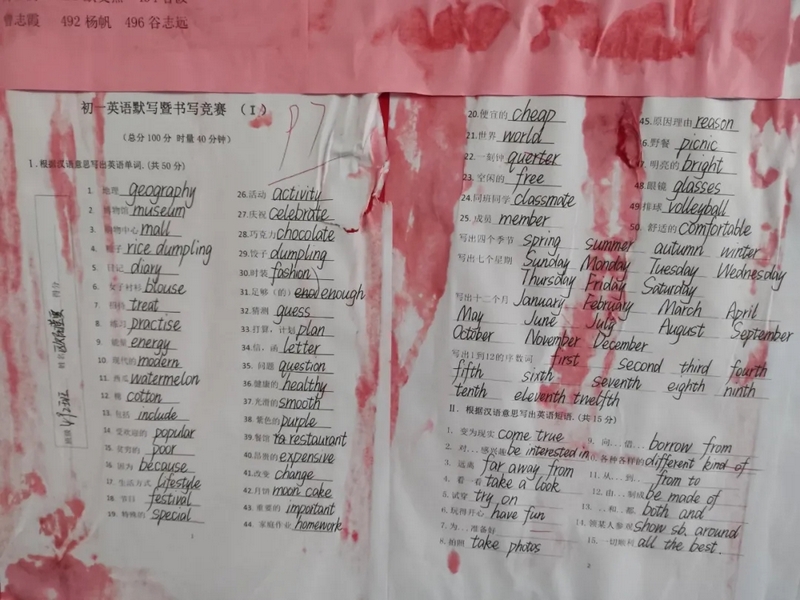 曹志霞 492 杨帆 496 谷志远
初一英语默写暨书写竞赛 （I）
P7
（总分100分 时量40分钟）
I.根据汉语意思写出英语单词.(共50分)
1. 地理 geography
2. 博物馆 museum
3. 购物中心 mall
4. 粽子 rice dumpling
5. 日记 diary
6. 女子衬衫 blouse
7. treat
8. 练习 practise
9. 能量 energy
10. 现代的 modern
11. 西瓜 watermelon
12. 棉 cotton
13. 包括 include
14. 受欢迎的 popular
15. 贫穷的 poor
16. 因为 because
17. 生活方式 lifestyle
18. 节日 festival
19. 特殊的 special
26.活动 activity
27. 庆祝 celebrate
28. 巧克力 chocolate
29. 饺子 dumpling
30.时装 fashion
31.足够（的） enough
32. 猜测 guess
33. 打算，计划 plan
34.信，函 letter
35. 问题 question
36.健康的 healthy
37.光滑的 smooth
38. 紫色的 purple
39.餐馆 restaurant
40.昂贵的 expensive
41.改变 change
42.月饼 moon cake
43.重要的 important
44. 家庭作业 homework
1
20.便宜的 cheap
21.世界 world
22. 一刻钟 querter
23. 空闲的 free
24.同班同学 classmate
25. 成员 member
45.原因理由 reason
46.野餐 picnic
47.明亮的 bright
48.眼镜 glasses
49.排球 volleyball
50. 舒适的 comfortable
写出四个季节 spring summer autumn winter
写出七个星期 Sunday Monday Tuesday Wednesday
Thursday Friday Saturday
写出十二个月 January February March April
May June July August September
October November December
写出1到12的序数词 first second third fourth
fifth sixth seventh eighth ninth
tenth eleventh twelfth
II. 根据汉语意思写出英语短语.（共15分）
1. 变为现实 come true
2. 对...感兴趣 be interested in
3. 远离 far away from
4. 看一看 take a look
5. 试穿 try on
6. 玩得开心 have fun
7. 为...准备好
8. 拍照 take photos
9. 向...借... borrow from
10. 各种各样的 different kind of
11. 从...到... from to
12. 由...制成 be made of
13. ...和...都 both and
14. 领某人参观 show sb. around
15. 一切顺利 all the best.
2